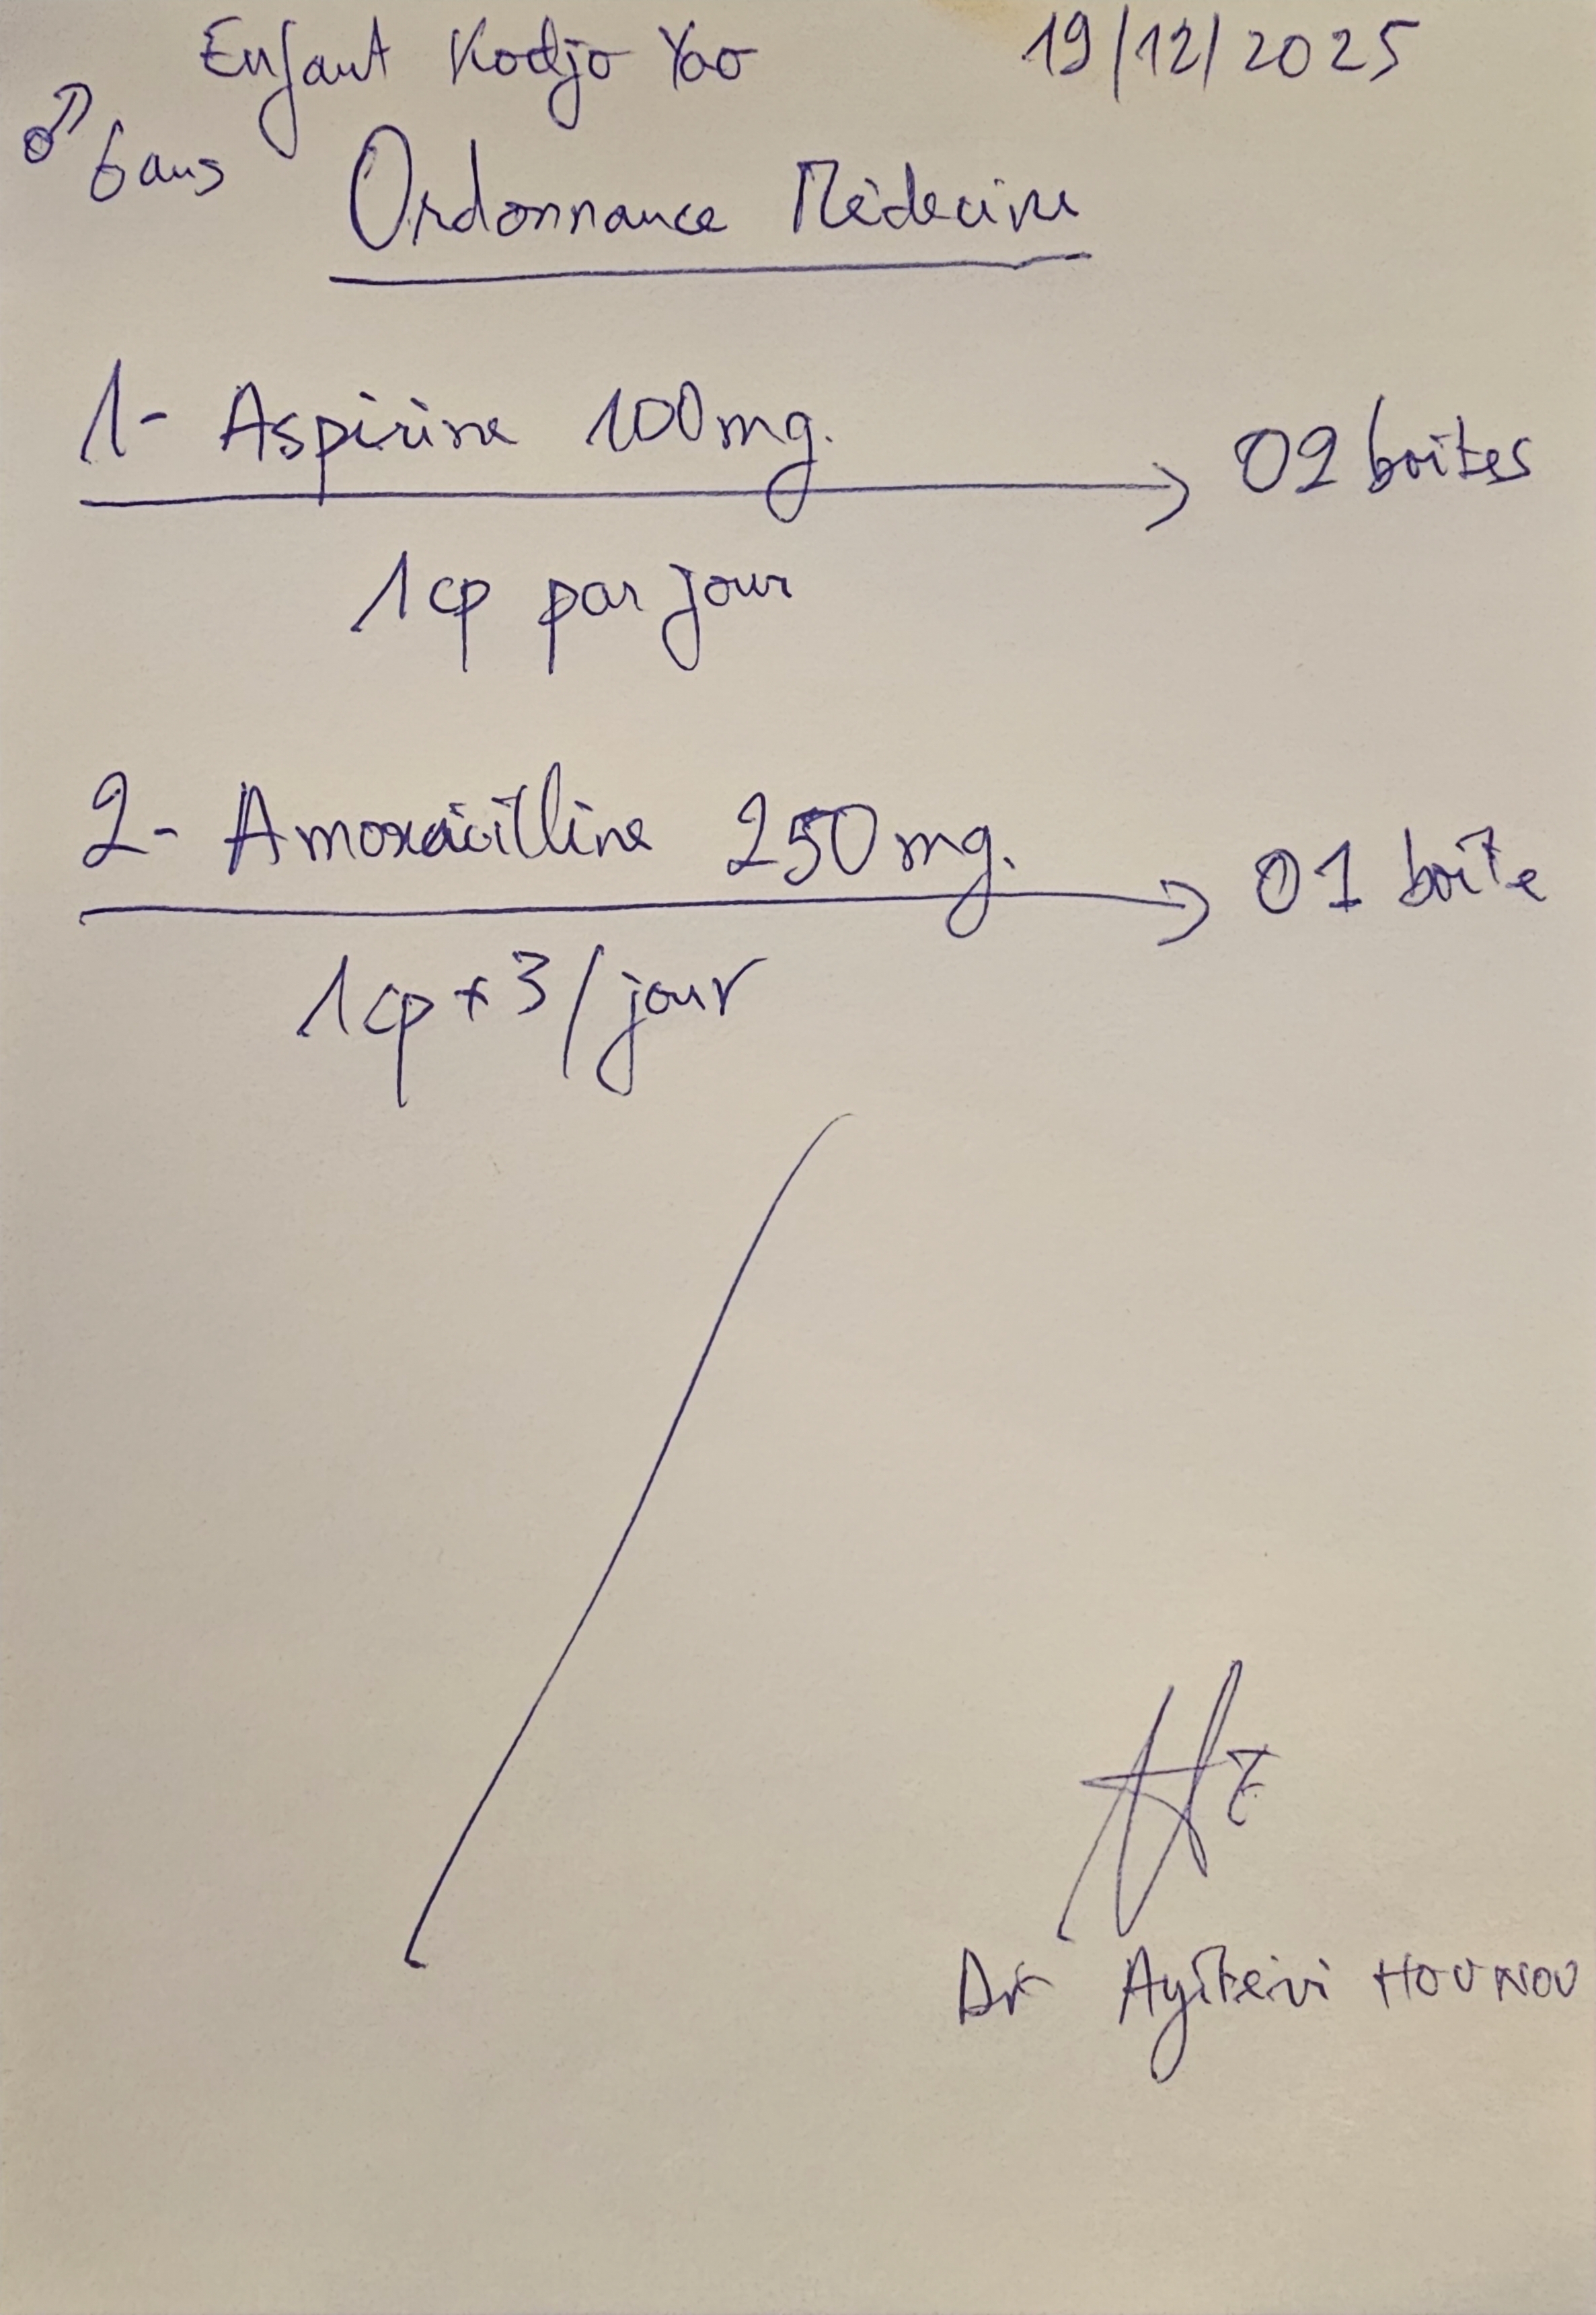 Enfant Kodjo Yao 19/12/2025
♂ 6 ans
Ordonnance Médecine
1- Aspirine 100mg. → 02 boîtes
1cp par jour
2- Amoxacilline 250mg. → 01 boîte
1cp x 3/jour
Dr Ayitévi HOUNOU